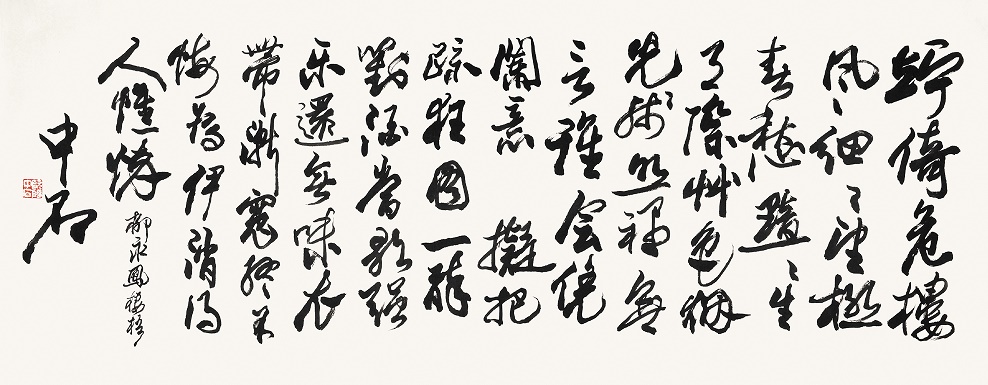 竚倚危樓
風細〻望極
春愁黯〻生
天際艸色烟
光殘照裡無
言誰会凭
闌意擬把
疏狂圖一醉
對酒當歌强
乐還無味衣
帶漸寬終不
悔為伊消得
人憔悴
柳永鳳棲梧
中石